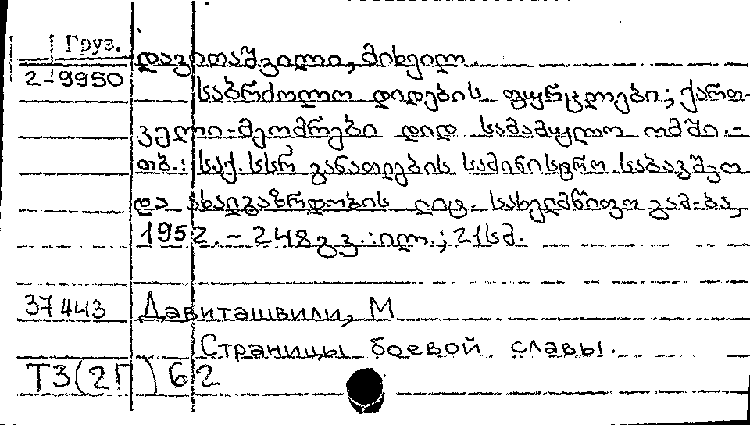 Груз.
დავითაშვილი, მიხეილ
2-9950
საბრძოლო დიდების ფურცლები; ქართ-
ველი-მეომრები დიდ სამამულო ომში.-
თბ.: საქ. სსრ განათლების სამინისტრო. საბავშვო
და ახალგაზრდობის ლიტ. სახელმწიფო გამ-ბა,
1952. - 248 გვ.: ილ.; 21 სმ.
37443 Давиташвили, М
Страницы боевой славы.
Т3(2Г)62